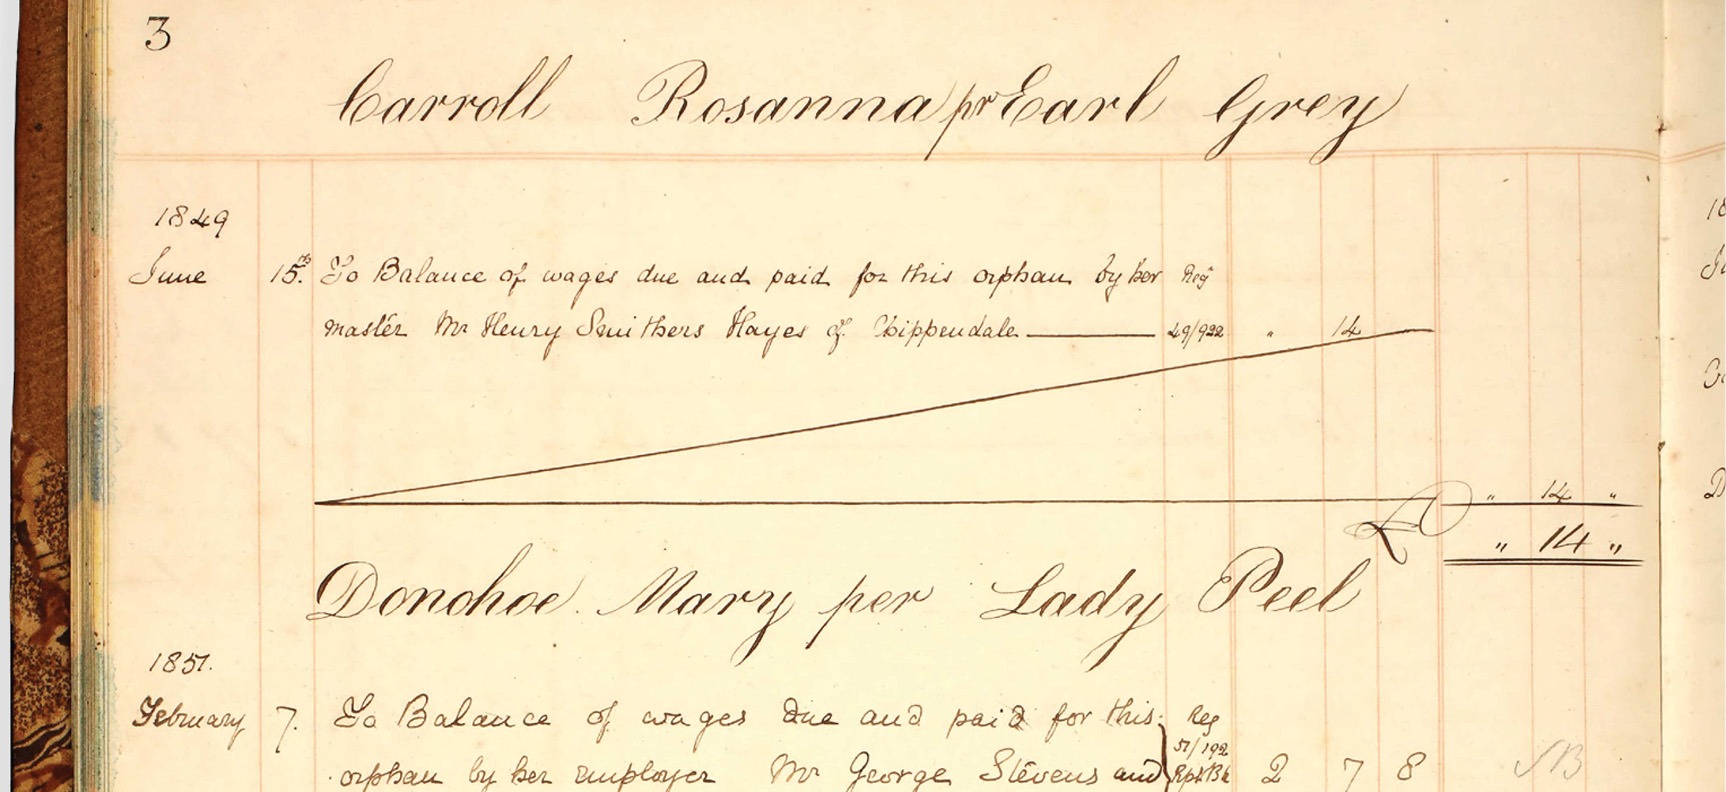 3
Carroll Rosanna pr Earl Grey
1849
June 15.th To Balance of wages due and paid for this orphan by her Reg
master Mr Henry Smithers Hayes of Chippendale 49/922 " 14
" 14 "
£ " 14 "
Donohoe. Mary per Lady Peel
1851.
February 7. To Balance of wages due and paid for this Reg
51/192
orphan by her employer Mr George Stevens and 2 7 8